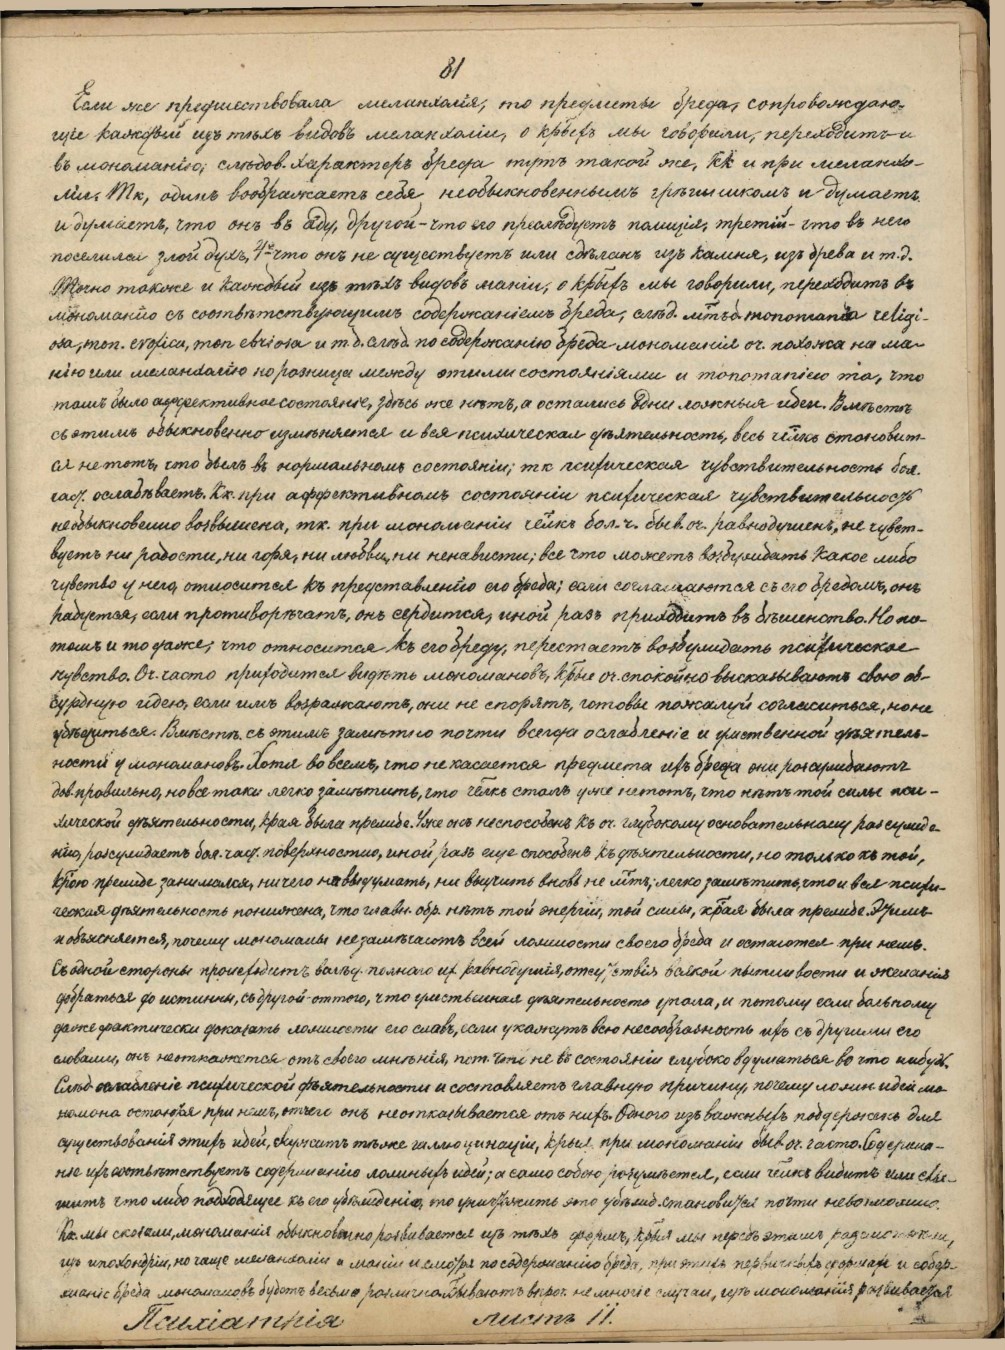 81
Если же предшествовала меланхолія, то предметы бреда, сопровождаю-
щіе каждый изъ тѣхъ видовъ меланхоліи, о крыхъ мы говорили, переходитъ и
въ мономанію, слѣдов. характеръ бреда тутъ такой же, кк и при меланхо-
ліи. Тк, одинъ воображаетъ себя необыкновеннымъ грѣшникомъ и думаетъ
и думаетъ, что онъ въ аду, другой - что его преслѣдуетъ полиція, третій - что въ него
поселился злой духъ, 4й что онъ не существуетъ или сдѣланъ изъ камня, изъ древа и т.д.
Точно также и каждый изъ тѣхъ видовъ маніи, о крыхъ мы говорили, переходитъ въ
мономанію съ соотвѣтствующимъ содержаніемъ бреда, слѣд. мтъ б. monomania religi-
osa, mon. erotica, mon ebriosa и т.д. слѣд по содержанію бреда мономанія оч. похожа на ма-
нію или меланхолію но разница между этими состояніями и monomaніею та, что
тамъ было аффективное состояніе, здѣсь же нѣтъ, а остались одни ложныя идеи. Вмѣстѣ
съ этимъ обыкновенно измѣняется и вся психическая дѣятельность, весь члкъ становит-
ся не тотъ, что былъ въ нормальномъ состояніи; тк психическая чувствительность бол.
част. ослабѣваетъ. Кк. при аффективномъ состояніи психическая чувствительность
необыкновенно возвышена, тк. при мономаніи члкъ бол. ч. быв. оч. равнодушенъ, не чувст-
вуетъ ни радости, ни горя, ни любви, ни ненависти; все что можетъ возбуждать какое либо
чувство у него, относится къ представленію его бреда; если соглашаются съ его бредомъ, онъ
радуется, если противорѣчатъ, онъ сердится, иной разъ приходитъ въ бѣшенство. Но по-
томъ и то даже, что относится къ его бреду, перестаетъ возбуждать психическое
чувство. Оч. часто приходится видѣть мономановъ, крые оч. спокойно высказываютъ свою аб-
сурдную идею, если имъ возражаютъ, они не спорятъ, готовы пожалуй согласиться, но не
убѣдиться. Вмѣстѣ съ этимъ замѣтно почти всегда ослабленіе и умственной дѣятель-
ности у мономановъ. Хотя во всемъ, что не касается предмета ихъ бреда они разсуждаютъ
дов. правильно, но все таки легко замѣтить, что члкъ сталъ уже не тотъ, что нѣтъ той силы пси-
хической дѣятельности, края была прежде. Уже онъ неспособенъ къ оч. глубокому основательному разсужде-
нію, разсуждаетъ бол. част. поверхностно, иной разъ еще способенъ къ дѣятельности, но только къ той,
крою прежде занимался, ничего ни выдумать, ни выучить вновь не мтъ; легко замѣтить, что и вся психи-
ческая дѣятельность понижена, что главн. обр. нѣтъ той энергіи, той силы, края была прежде. Этимъ
и объясняется, почему мономаны не замѣчаютъ всей ложности своего бреда и остаются при немъ.
Съ одной стороны происходитъ вслѣд. полнаго их равнодушія, отсутствія всякой пытливости и желанія
добраться до истины, съ другой - оттого, что умственная дѣятельность упала, и потому если больному
даже фактически доказать ложность его словъ, если укажутъ всю несообразность ихъ съ другими его
словами, онъ не откажется отъ своего мнѣнія, пот. что не въ состояніи глубоко вдуматься во что нибудь.
Слѣд. ослабленіе психической дѣятельности и составляетъ главную причину, почему ложн. идеи мо-
номана остаются при немъ, отчего онъ не отказывается отъ нихъ. Одного изъ важныхъ поддержекъ для
существованія этихъ идей, служатъ также галлюцинаціи, крыя при мономаніи быв. оч. часто. Содержа-
ніе ихъ соотвѣтствуетъ содержанію ложныхъ идей; а само собою разумѣется, если члкъ видитъ или слы-
шитъ что либо подходящее къ его убѣжденію, то уничтожить это убѣжд. становится почти невозможно.
Кк. мы сказали, мономанія обыкновенно развивается изъ тѣхъ формъ, крыя мы передъ этимъ разсмотрѣли,
изъ ипохондріи, но чаще меланхоліи и маніи и смотря по содержанію бреда, при этихъ первичныхъ формахъ и содер-
жаніе бреда мономановъ будетъ весьма различно. Бываютъ впроч. немногіе случаи, гдѣ мономанія развивается
Психіатрія листъ 11.